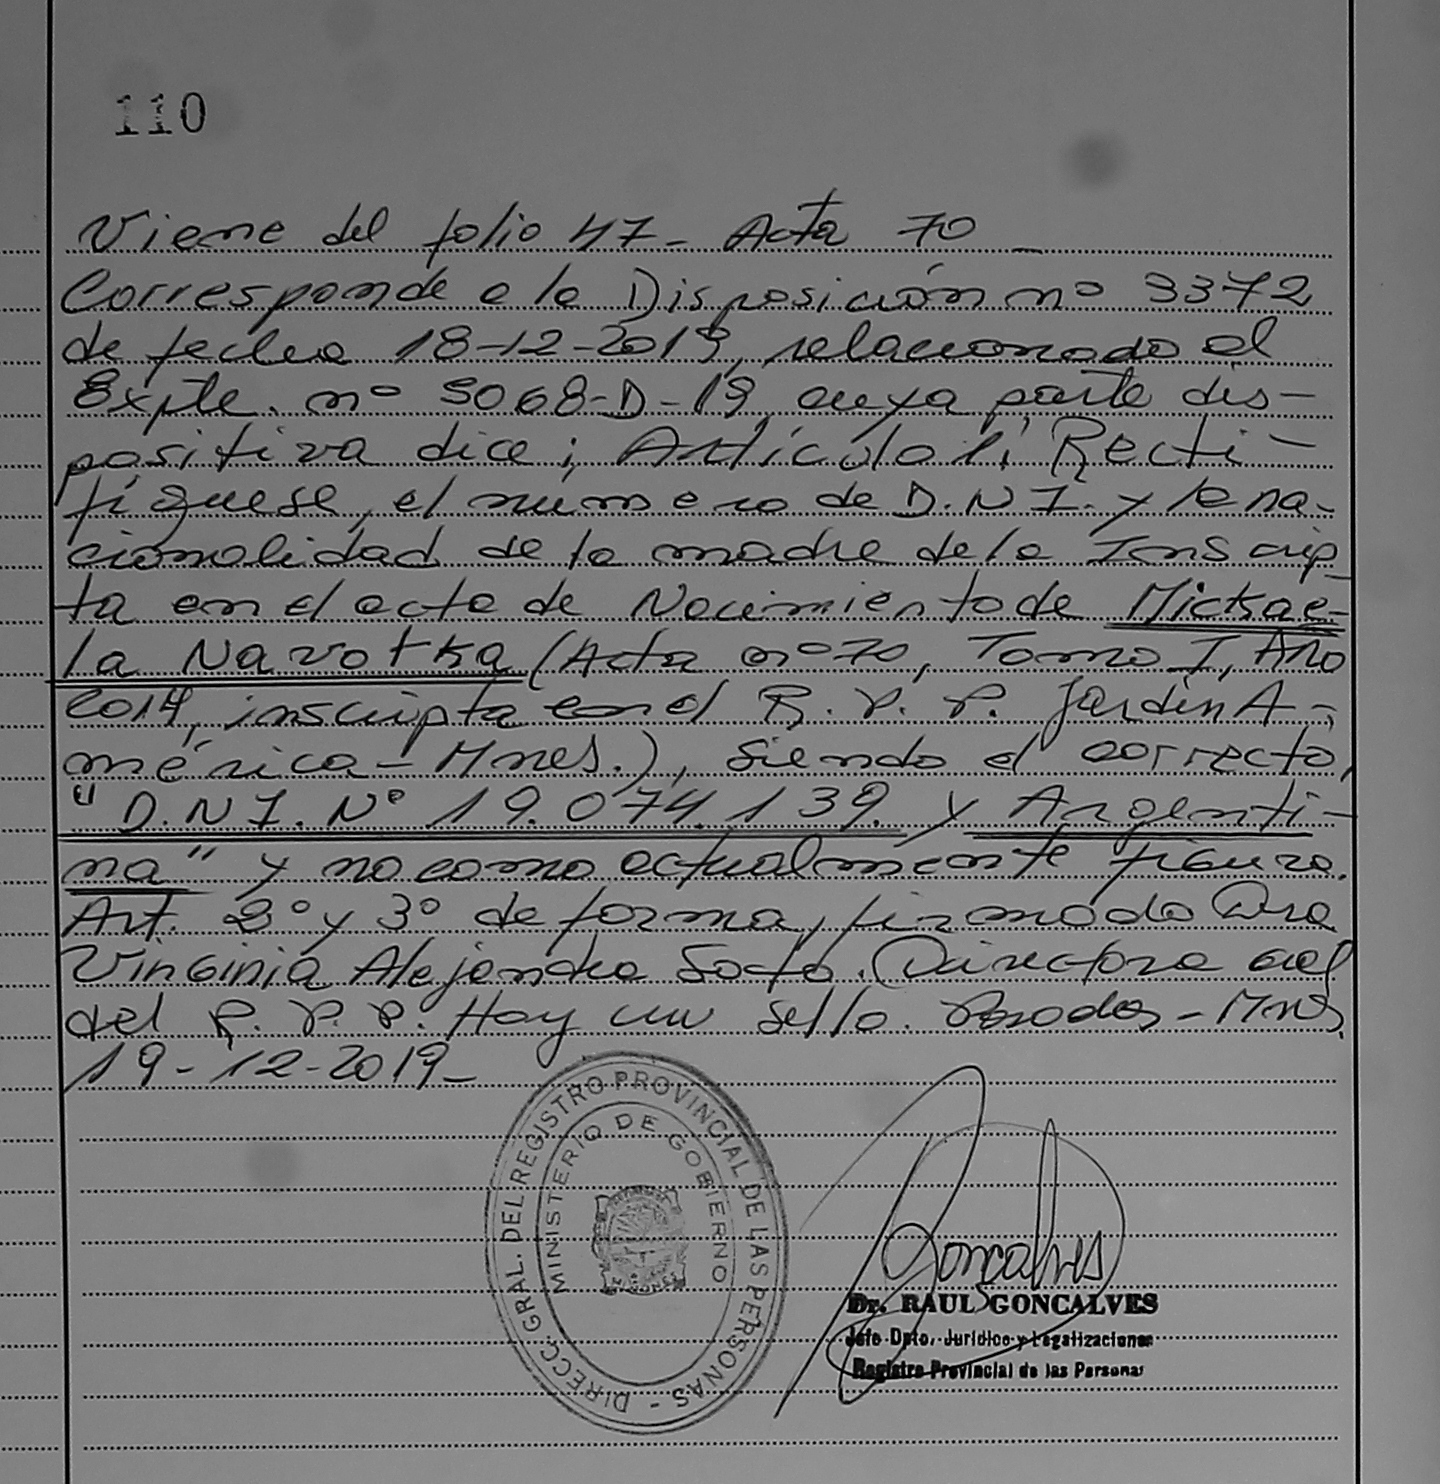 110
Viene del folio 47- Acta 70
Corresponde a la Disposición nº 3372
de fecha 18-12-2019, relacionado al
Expte. nº 5068-D-19, cuya parte dis-
positiva dice; Artículo 1; Recti-
fíquese, el numero de D.N.I. y la na-
cionalidad de la madre de la Inscrip-
ta en el acta de Nacimiento de Mickae-
la Navotka (Acta nº 70, Tomo I, Año
2014, inscripta en el R.P.P. Jardin A-
mérica - Mnes.), siendo el correcto,
"D.N.I. Nº 19.074.139. y Argenti-
na" y no como actualmente figura.
Art. 2º y 3º de forma, firmado Dra
Virginia Alejandra Soto. (Directora
del R.P.P. Hay un sello. Posadas - Mns.
19-12-2019-
DIRECC. GRAL. DEL REGISTRO PROVINCIAL DE LAS PERSONAS -
MINISTERIO DE GOBIERNO
Goncalves
Dr. RAUL GONCALVES
Jefe Dpto. Jurídico y Legalizaciones
Registro Provincial de las Personas